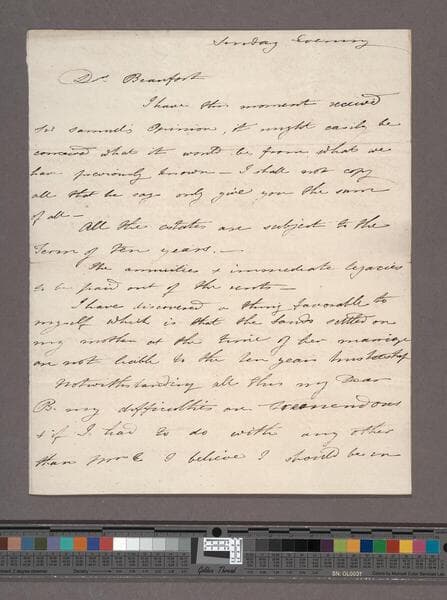 Sunday Evening
Dr. Beaufort
I have this moment received
Sir Samuel's Opinion, it might easily be
conceived what it would be from what we
have previously known — I shall not copy
all that he says only give you the sum
of all —
All the estates are subject to the
Term of ten years. —
The annuities & immediate legacies
to be paid out of the rents —
I have discovered a thing favorable to
myself which is that the lands settled on
my mother at the time of her marriage
are not liable to the ten years trust
Notwithstanding all this my Dear
B. my difficulties are tremendous
& if I had to do with any other
than Mr C I believe I should be in
Golden Thread
SN: OL0037